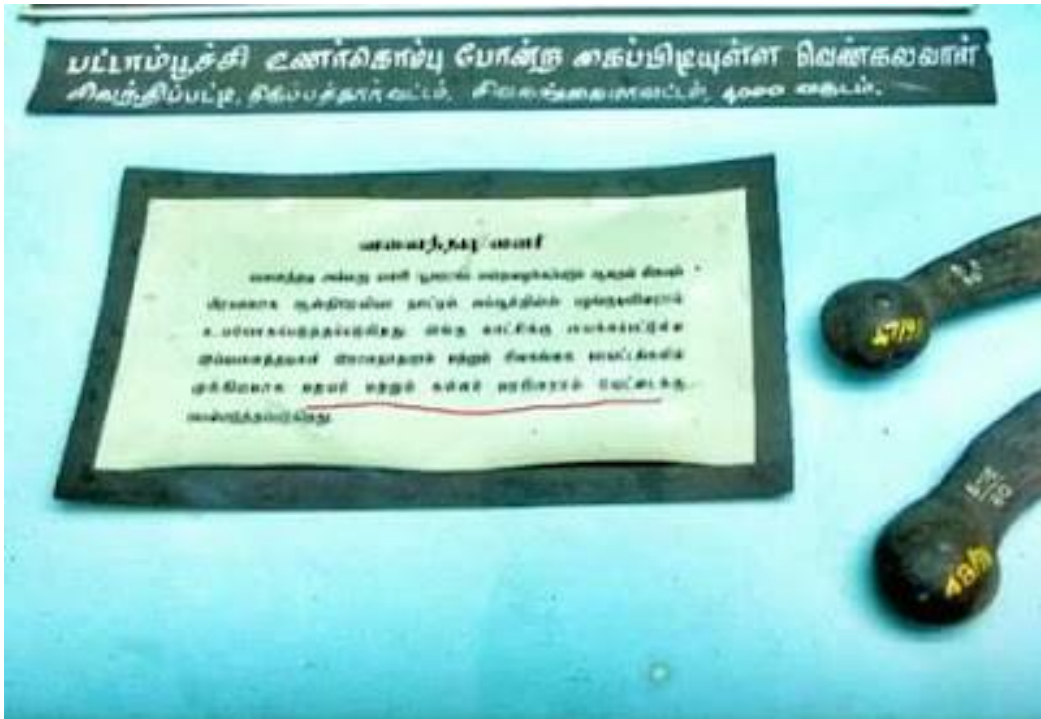 பட்டாம்பூச்சி உணர்கொம்பு போன்ற கைப்பிடியுள்ள வெண்கலவாள்
சிவந்திப்பட்டி, திருப்பத்தூர் வட்டம், சிவகங்கை மாவட்டம், 4000 வருடம்.
வளைத்தடி/வளரி
வளைத்தடி அல்லது வளரி பூமராங் என்றழைக்கப்படும் ஆகும் இவை
பிரபலமாக ஆஸ்திரேலியா நாட்டில் பழங்குடியினரால்
உபயோகப்படுத்தப்படுகிறது. இங்கு காட்சிக்கு வைக்கப்பட்டுள்ள
இவ்வளைத்தடிகள் இராமநாதபுரம் மற்றும் சிவகங்கை மாவட்டங்களில்
முக்கியமாக மறவர் மற்றும் கள்ளர் மரபினரால் வேட்டைக்கு
பயன்படுத்தப்படுகிறது.
47/91
48/91